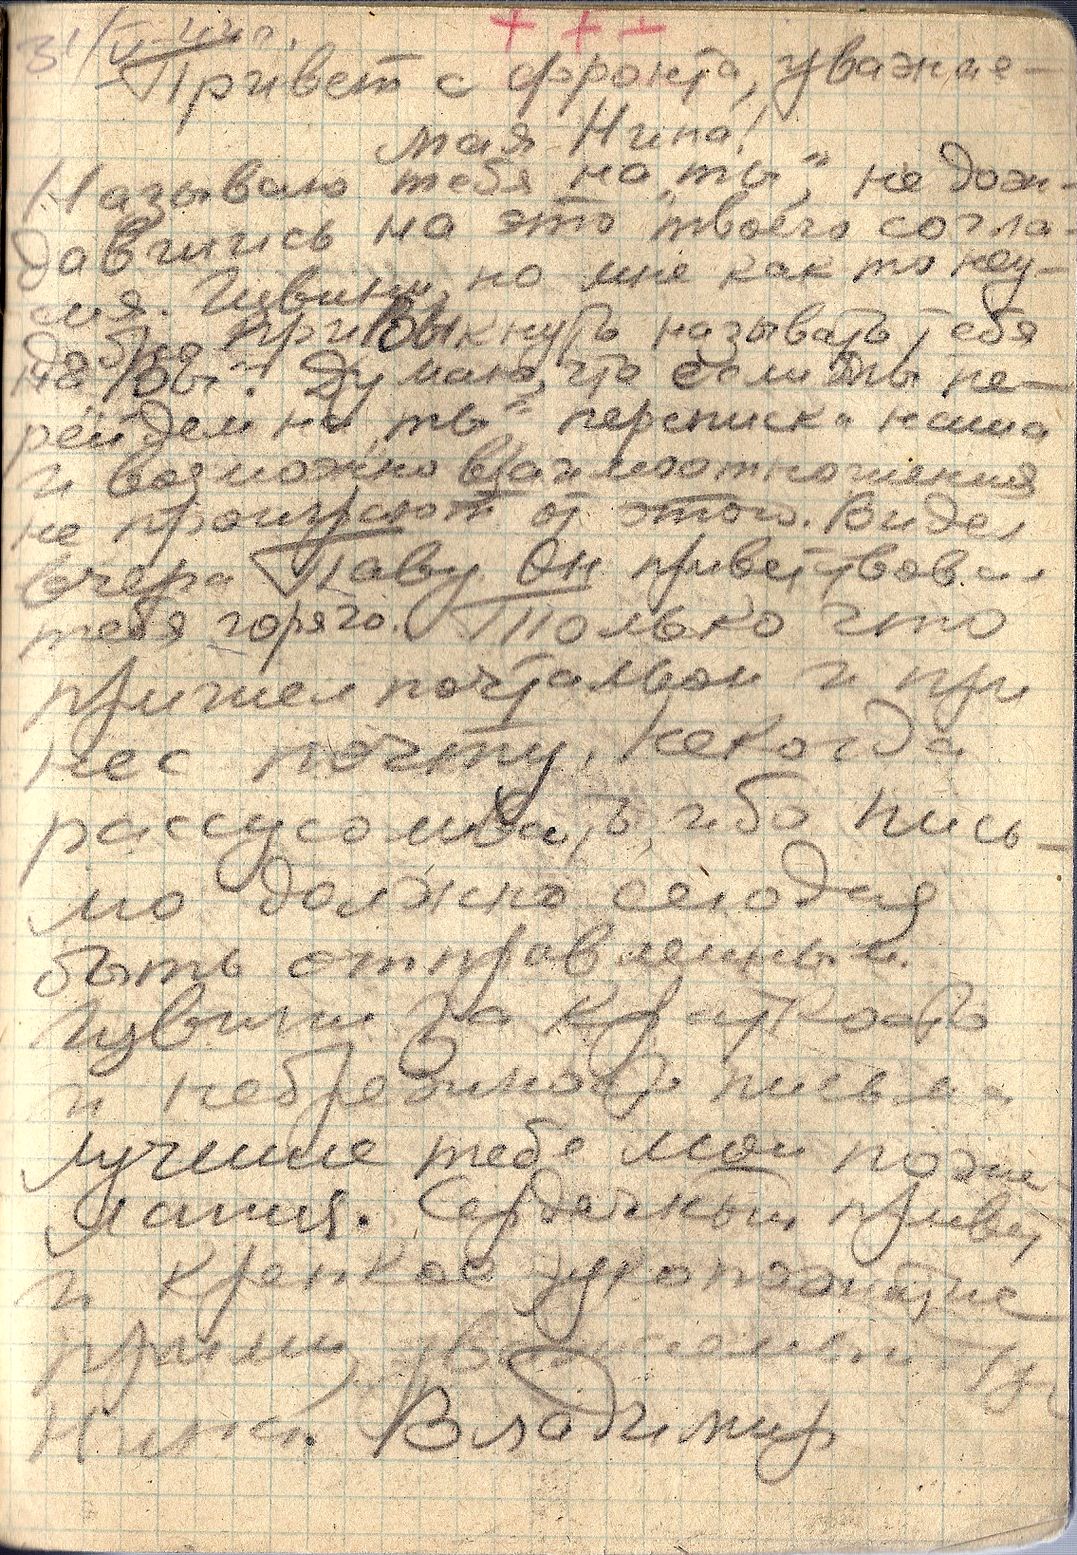 31/V-44 г.
+ + +
Привет с фронта, уважае-
мая Нина!
Называю тебя на "ты", не дож-
давшись на это твоего согла-
сия. Извини, но мне как то неу-
добно привыкнуть называть тебя
на "Вы". Думаю, что если мы пе-
рейдем на "ты" переписка наша
и возможно взаимоотношения
не проиграют от этого. Видел
вчера Паву. Он приветствовал
тебя горячо. Только что
пришел почтальон и при
нес почту. Некогда
рассусоливать, ибо пись-
мо должно сегодня
быть отправленным.
Извини за краткость
и небрежность письма
Лучшие тебе мои поже-
лания. Сердечный привет
и крепкое рукопожатие
прими, уважаемая
Нина. Владимир